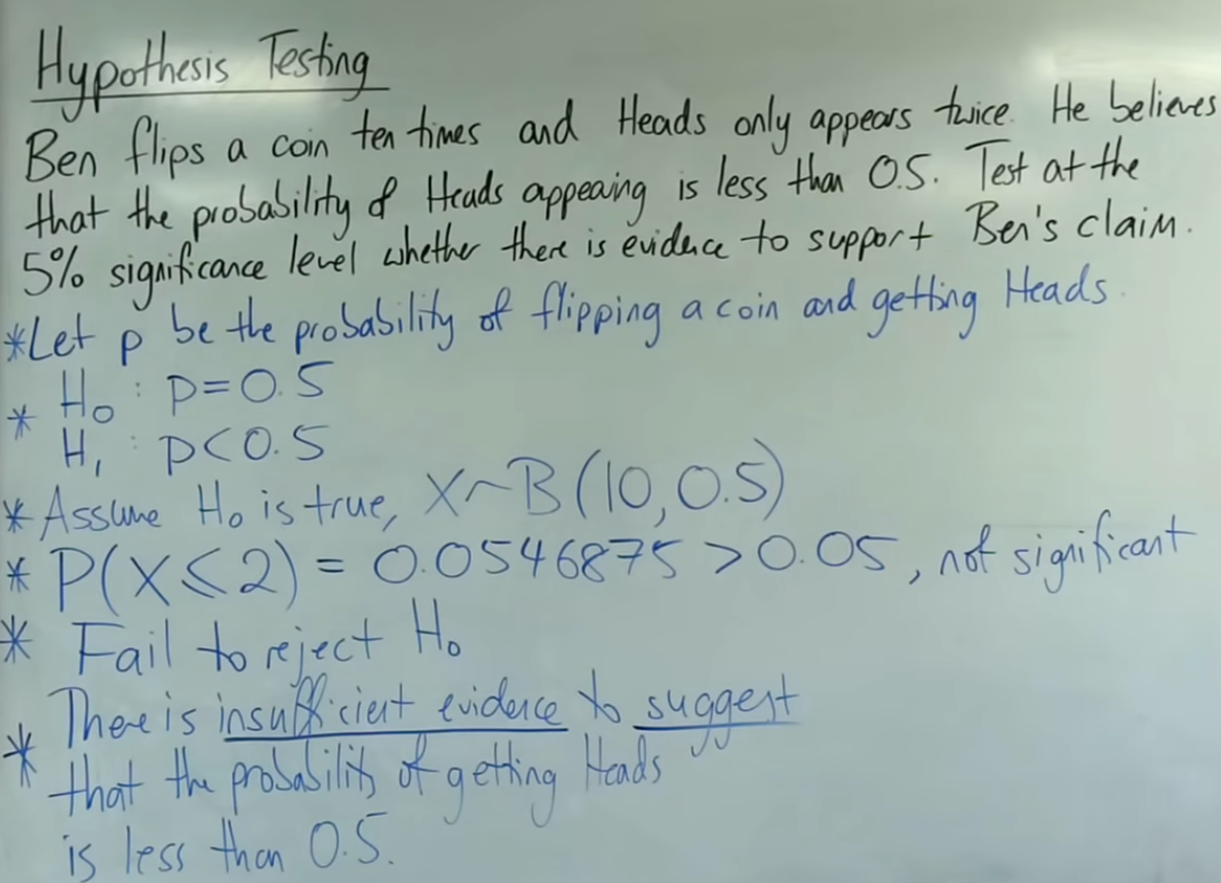 Hypothesis Testing
Ben flips a coin ten times and Heads only appears twice. He believes
that the probability of Heads appearing is less than 0.5. Test at the
5% significance level whether there is evidence to support Ben's claim.
*Let p be the probability of flipping a coin and getting Heads.
* H₀ : p=0.5
H₁ : p<0.5
* Assume H₀ is true, X~B(10,0.5)
* P(X≤2) = 0.0546875 >0.05, not significant
* Fail to reject H₀
* There is insufficient evidence to suggest
that the probability of getting Heads
is less than 0.5.